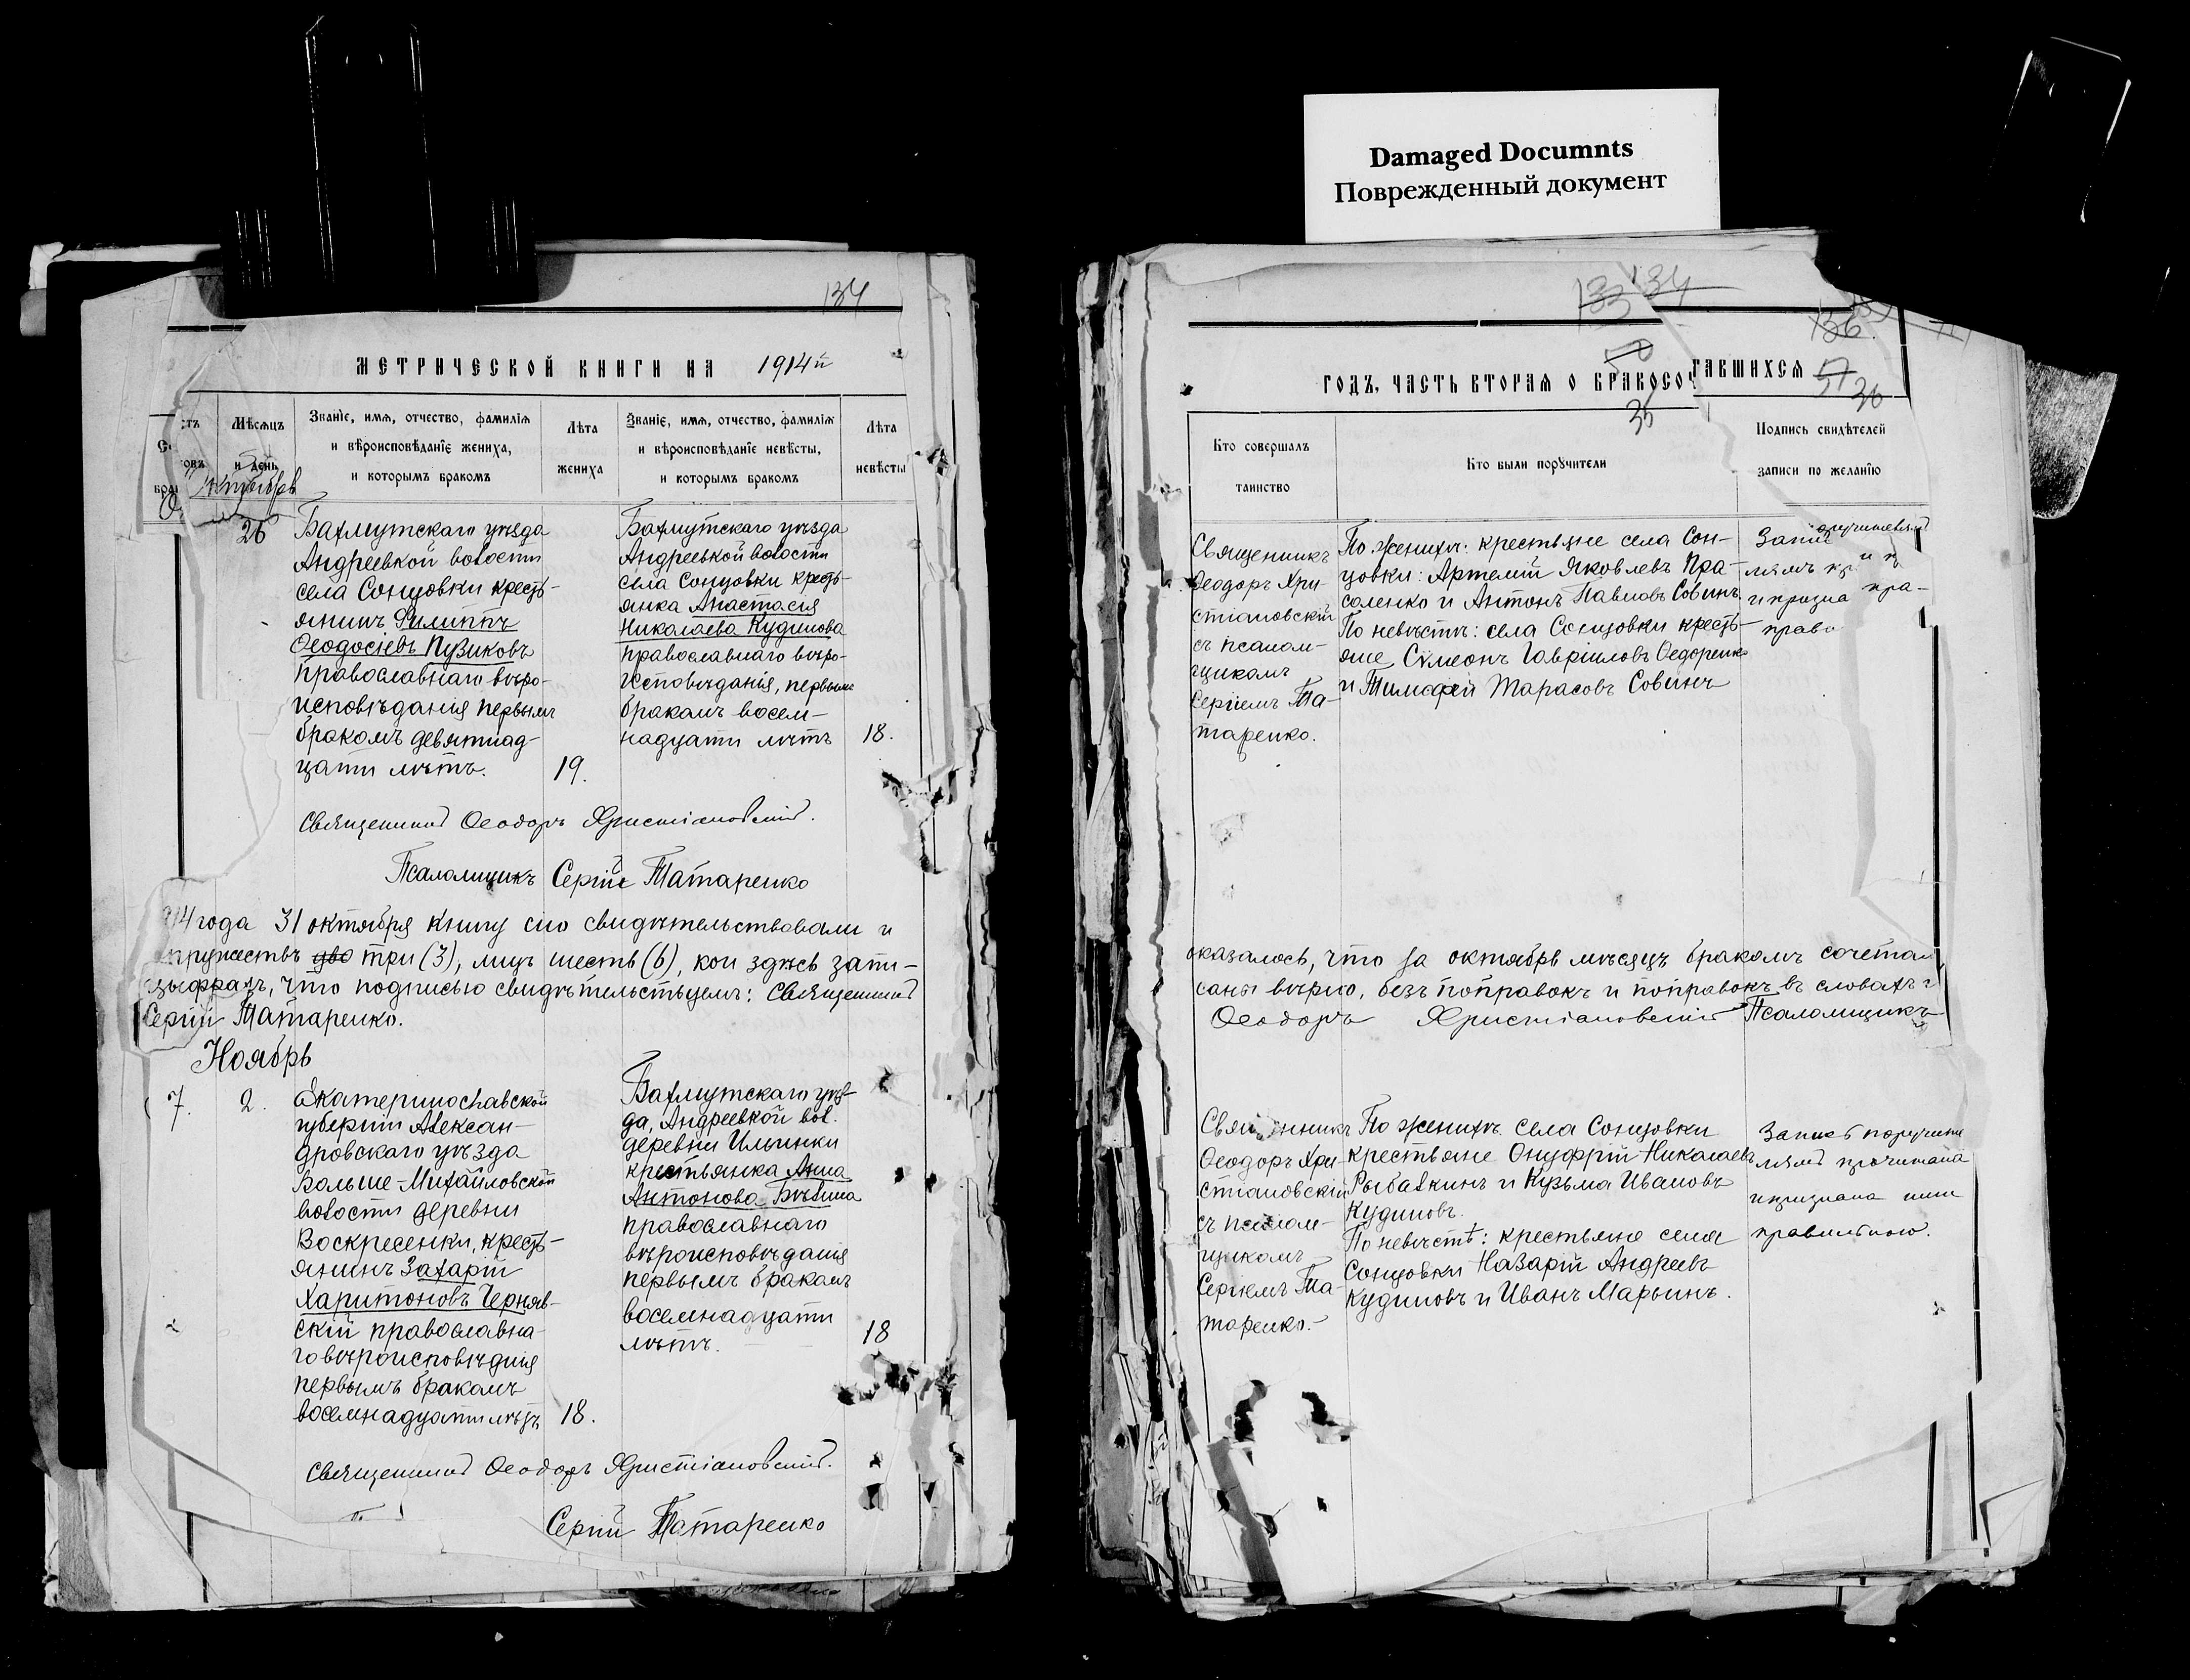 Damaged Documnts
Поврежденный документ
134
МЕТРИЧЕСКОЙ КНИГИ НА 1914й
Мѣсяцъ
и день
Званіе, имя, отчество, фамилія
и вѣроисповѣданіе жениха,
и которымъ бракомъ
Лѣта
жениха
Званіе, имя, отчество, фамилія
и вѣроисповѣданіе невѣсты,
и которымъ бракомъ
Лѣта
невѣсты
26
Бахмутскаго уѣзда
Андреевкой волости
села Сонцовки кресть-
янинъ Филиппъ
Ѳеодосіевъ Пузиковъ
православнаго вѣро-
исповѣданія первымъ
бракомъ девятнад-
цати лѣтъ.
19.
Бахмутскаго уѣзда
Андреевкой волости
села Сонцовки кресть-
янка Анастасія
Николаева Кудинова
православнаго вѣро-
исповѣданія, первымъ
бракомъ восем-
надцати лѣтъ
18.
Священникъ Ѳеодоръ Христіановскій.
Псаломщикъ Сергій Татаренко
914 года 31 октября книгу сію свидѣтельствовали и
пружествъ два три (3), лицъ шесть (6), кои здѣсь запи-
цыфрахъ, что подписью свидѣтельствуемъ: Священникъ
Сергій Татаренко.
Ноябрь
7.
2.
Екатеринославской
губерніи Алексан-
дровскаго уѣзда
Больше-Михайловской
волости деревни
Воскресенки, кресть-
янинъ Захарій
Харитоновъ Черняв-
скій православна-
го вѣроисповѣднія
первымъ бракомъ
восемнадцати лѣтъ
18.
Бахмутскаго уѣз-
да, Андреевкой вол.
деревни Ильинки
крестьянка Анна
Антонова
православнаго
вѣроисповѣданія
первымъ бракомъ
восемнадцати
лѣтъ.
18
Священникъ Ѳеодоръ Христіановскій.
Сергій Татаренко
133 134
136
50
ГОДЪ, ЧАСТЬ ВТОРАЯ О БРАКОСОЧ ТАВШИХСЯ
57
36
35
Кто совершалъ
таинство
Кто были поручители
Подпись свидѣтелей
записи по желанію
Священникъ
Ѳеодоръ Хри-
стіановскій
съ псалом-
щикомъ
Сергіемъ Та-
таренко.
По женихѣ: крестьяне села Сон-
цовки: Артемій Яковлевъ Пра-
соленко и Антонъ Павловъ Совинъ.
По невѣстѣ: села Сонцовки кресть-
яне, Сѵмеонъ Гавріиловъ Ѳедоренко
и Тимофей Тарасовъ Совинъ
оказалось, что за октябрь мѣсяцъ бракомъ сочета
саны вѣрно, безъ поправокъ и поправокъ въ словахъ и
Ѳеодоръ Христіановскій Псаломщикъ
Священникъ
Ѳеодоръ Хри-
стіановскій
съ псалом-
щикомъ
Сергіемъ Та-
таренко.-
По женихѣ села Сонцовки
крестьяне Онуфрій Николаевъ
Рыбалкинъ и Кузьма Ивановъ
Кудиновъ.
По невѣстѣ: крестьяне села
Сонцовки Назарій Андреевъ
Кудиновъ и Иванъ Марьинъ.
Запись поручите
лямъ прочитана
и признана ими
правильною.